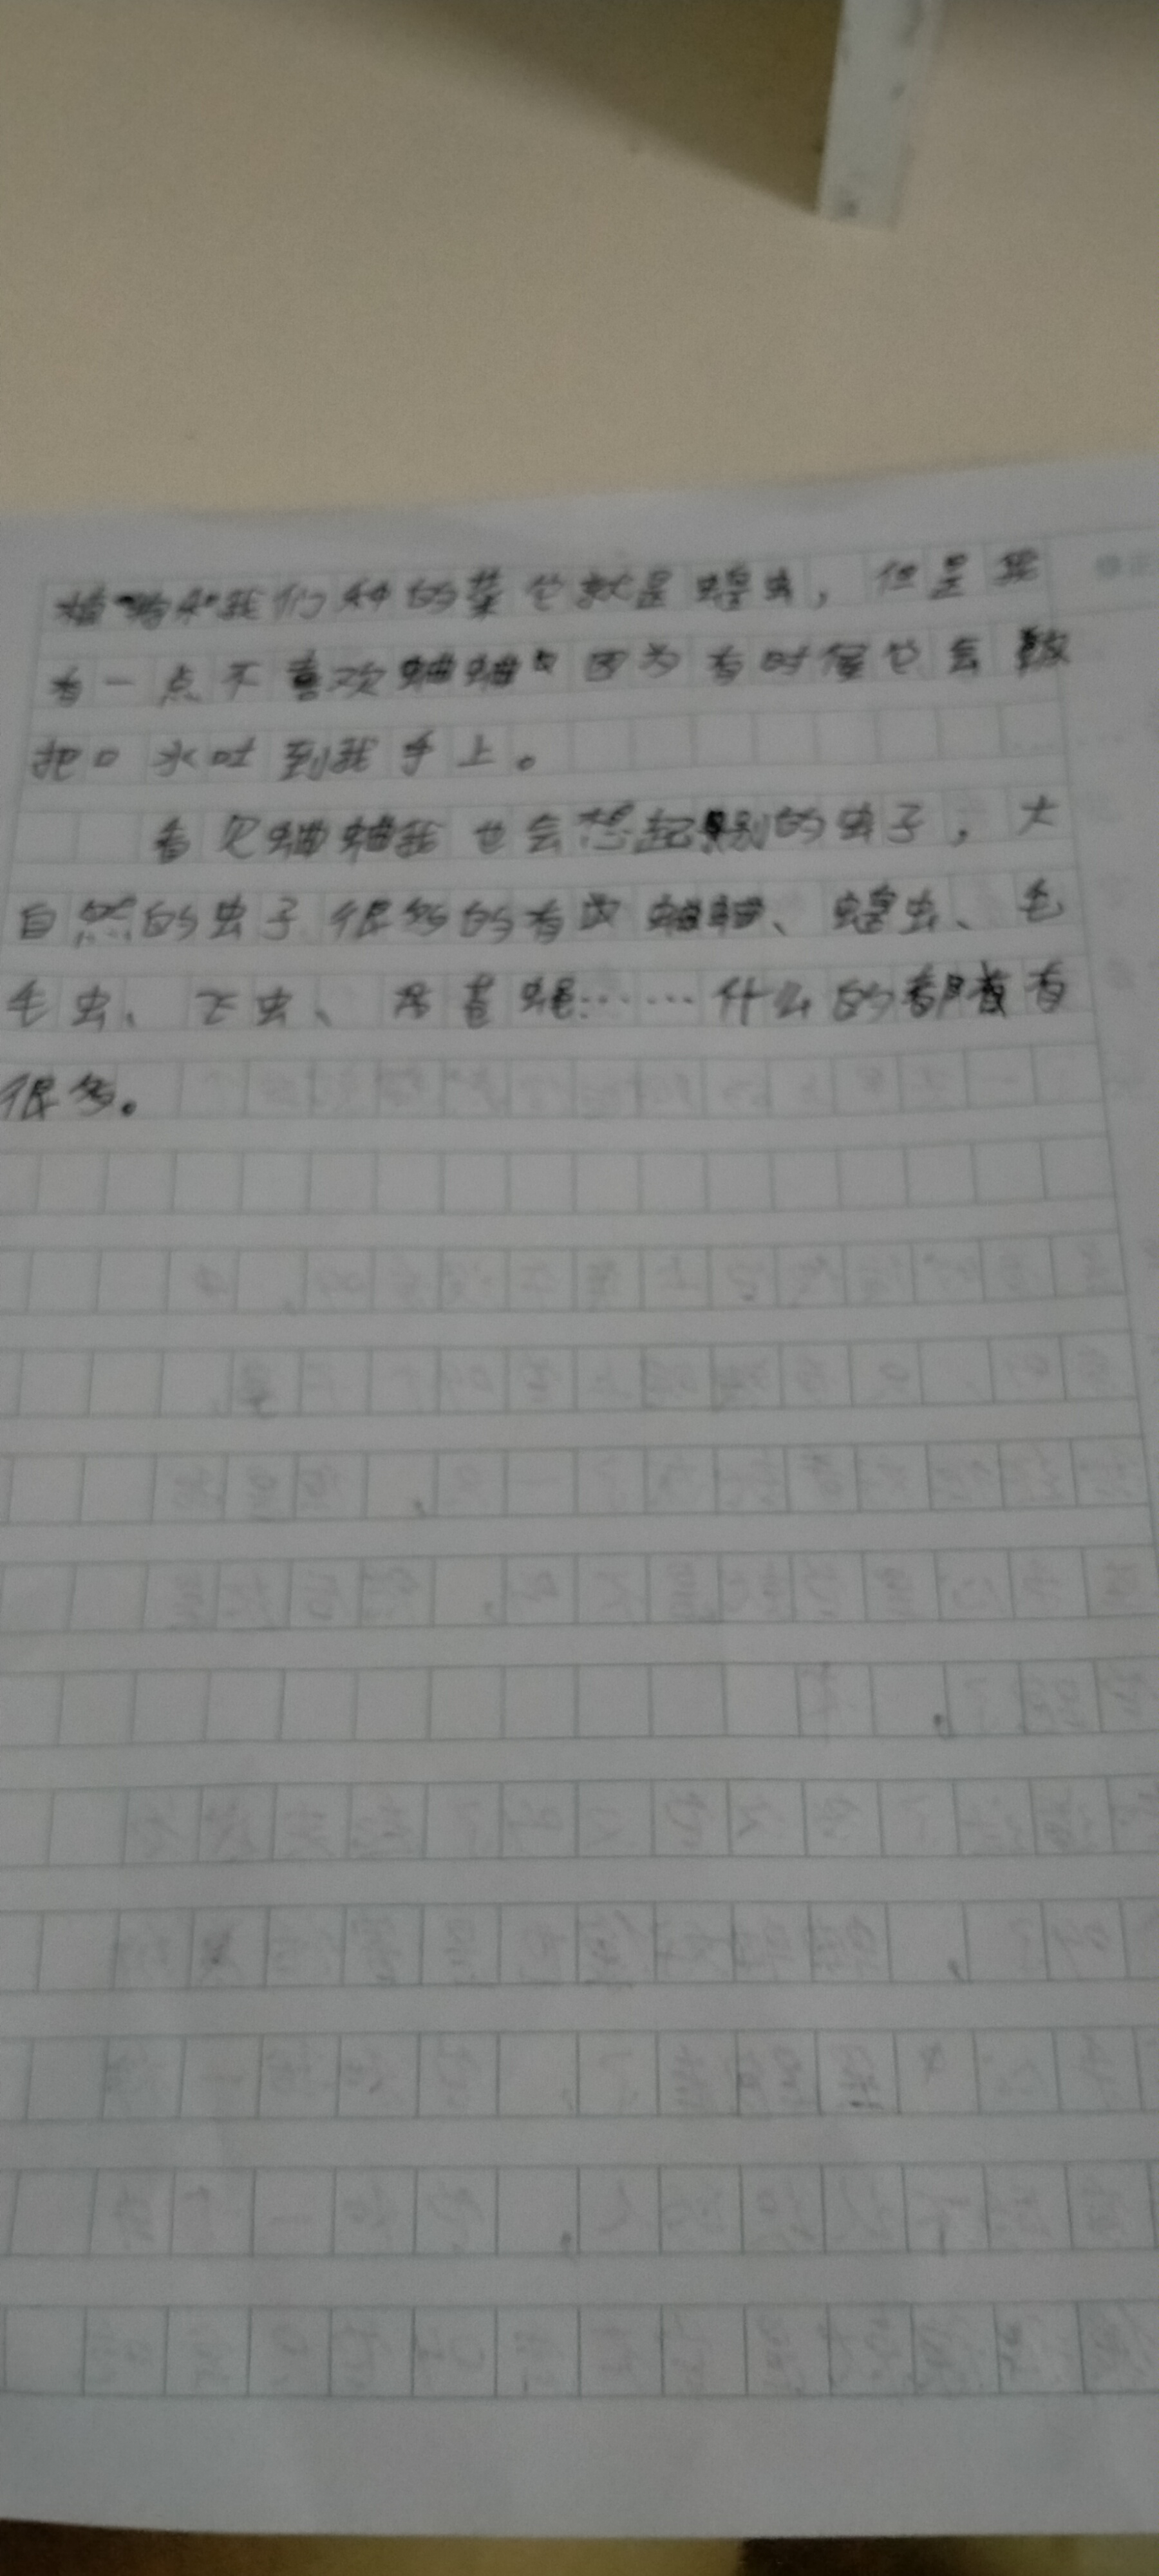 植物和我们种的菜它就是蝗虫，但是我
有一点不喜欢蛐蛐因为有时候它会
把口水吐到我手上。
看见蛐蛐我也会想起别的虫子，大
自然的虫子很多的有蛐蛐、蝗虫、毛
毛虫、飞虫、……什么的都有
很多。